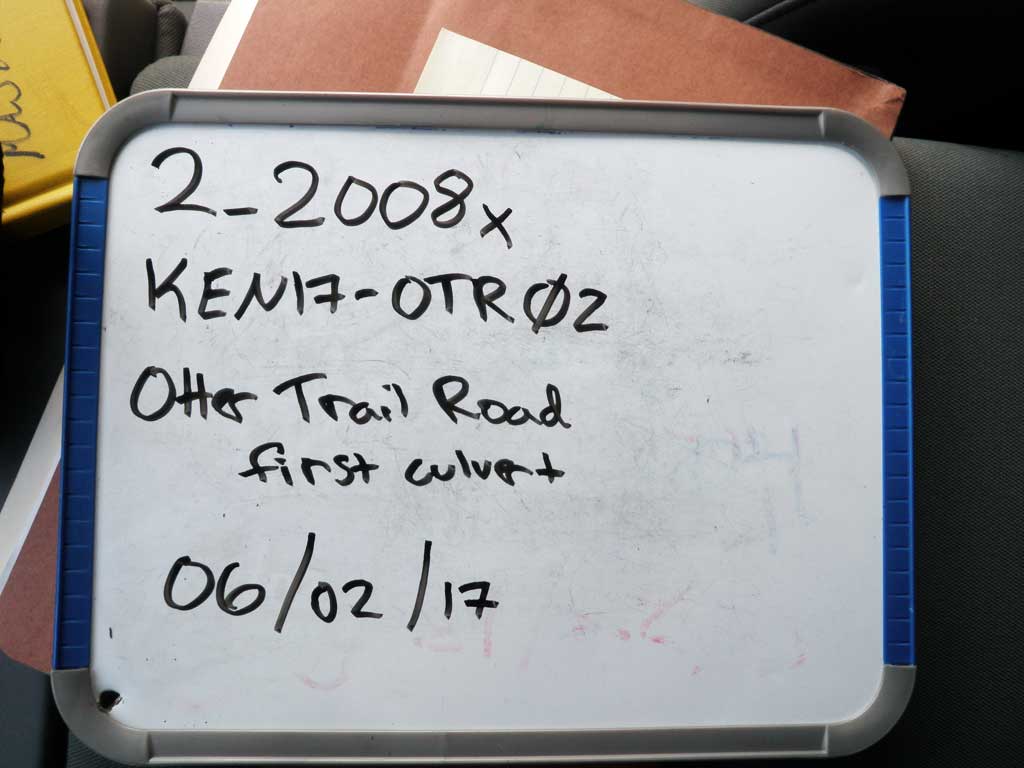 2_2008x
KEN17-OTRØ2
Otter Trail Road
first culvert
06/02/17